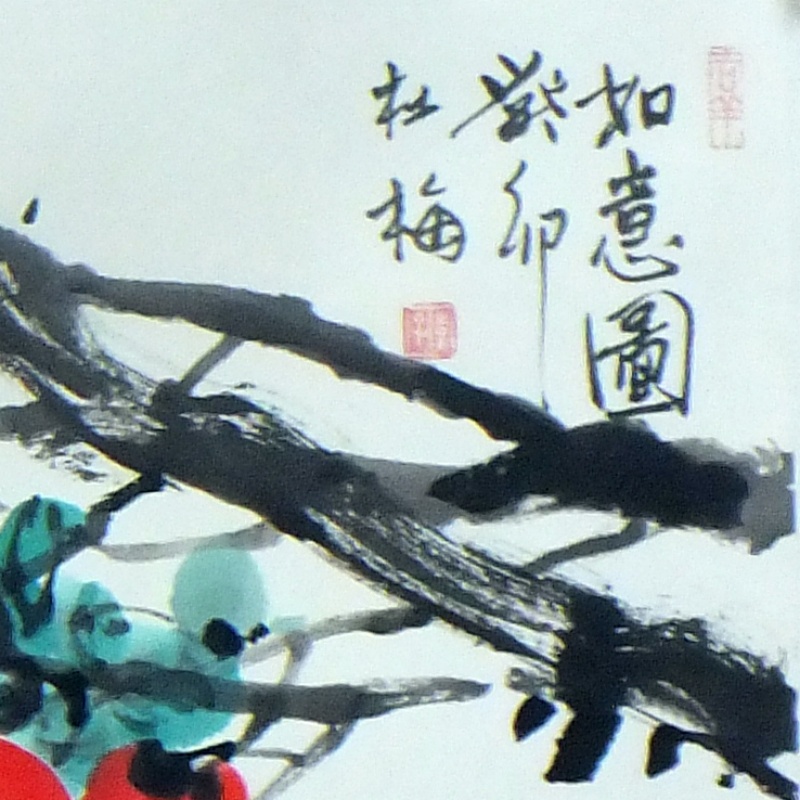 如意圖
癸卯
杜梅